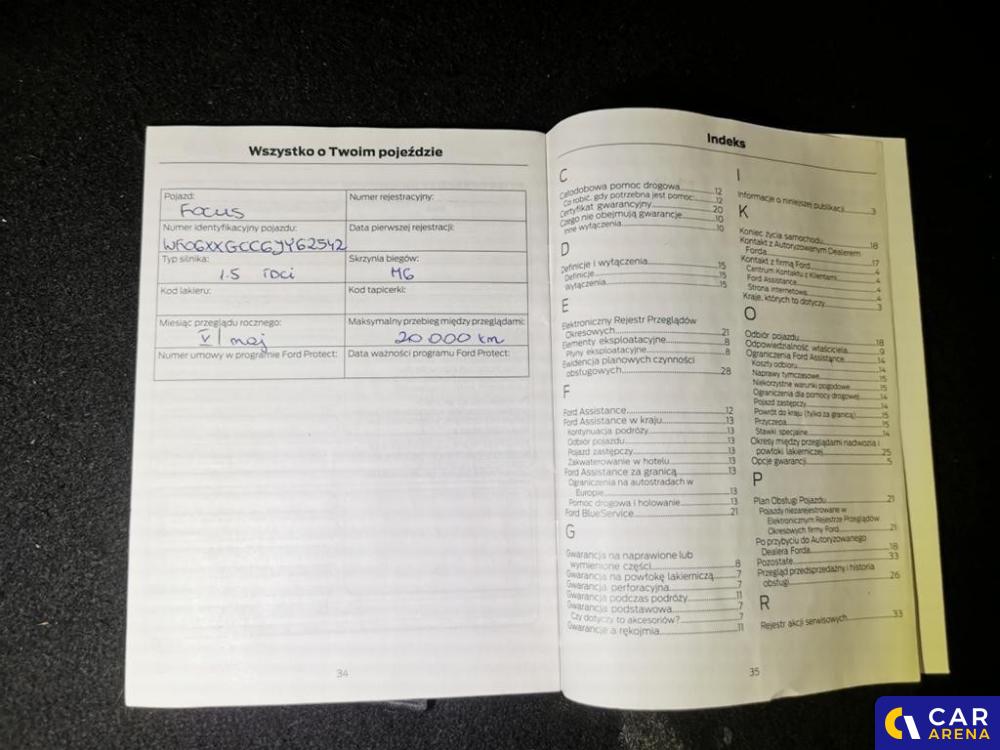 Wszystko o Twoim pojeździe
Pojazd:
Focus
Numer rejestracyjny:
Numer identyfikacyjny pojazdu:
WF06XXGCC6JY62542
Data pierwszej rejestracji:
Typ silnika:
1.5 TDCi
Skrzynia biegów:
M6
Kod lakieru:
Kod tapicerki:
Miesiąc przeglądu rocznego:
V / maj
Maksymalny przebieg między przeglądami:
20 000 km
Numer umowy w programie Ford Protect:
Data ważności programu Ford Protect:
34
Indeks
C
Całodobowa pomoc drogowa 12
Co robić, gdy potrzebna jest pomoc 12
Certyfikat gwarancyjny 20
Czego nie obejmują gwarancje 10
Inne wyłączenia 10
D
Definicje i wyłączenia 15
Definicje 15
Wyłączenia 15
E
Elektroniczny Rejestr Przeglądów
Okresowych 21
Elementy eksploatacyjne 8
Płyny eksploatacyjne 8
Ewidencja planowych czynności
obsługowych 28
F
Ford Assistance 12
Ford Assistance w kraju 13
Kontynuacja podróży 13
Odbiór pojazdu 13
Pojazd zastępczy 13
Zakwaterowanie w hotelu 13
Ford Assistance za granicą 13
Ograniczenia na autostradach w
Europie 13
Pomoc drogowa i holowanie 13
Ford BlueService 21
G
Gwarancja na naprawione lub
wymienione części 8
Gwarancja na powłokę lakierniczą 7
Gwarancja perforacyjna 7
Gwarancja podczas podróży 11
Gwarancja podstawowa 7
Czy dotyczy to akcesoriów? 7
Gwarancje a rękojmia 11
I
Informacje o niniejszej publikacji 3
K
Koniec życia samochodu 18
Kontakt z Autoryzowanym Dealerem
Forda 17
Kontakt z firmą Ford 4
Centrum Kontaktu z Klientami 4
Ford Assistance 4
Strona internetowa 4
Kraje, których to dotyczy 3
O
Odbiór pojazdu 18
Odpowiedzialność właściciela 9
Ograniczenia Ford Assistance 14
Koszty odbioru 14
Naprawy tymczasowe 15
Niekorzystne warunki pogodowe 15
Ograniczenia dla pomocy drogowej 14
Pojazd zastępczy 14
Powrót do kraju (tylko za granicą) 15
Przyczepa 15
Stawki specjalne 14
Okresy między przeglądami nadwozia i
powłoki lakierniczej 25
Opcje gwarancji 5
P
Plan Obsługi Pojazdu 21
Pojazdy niezarejestrowane w
Elektronicznym Rejestrze Przeglądów
Okresowych firmy Ford 21
Po przybyciu do Autoryzowanego
Dealera Forda 18
Pozostałe 33
Przegląd przedsprzedażny i historia
obsługi 26
R
Rejestr akcji serwisowych 33
35
CAR
ARENA